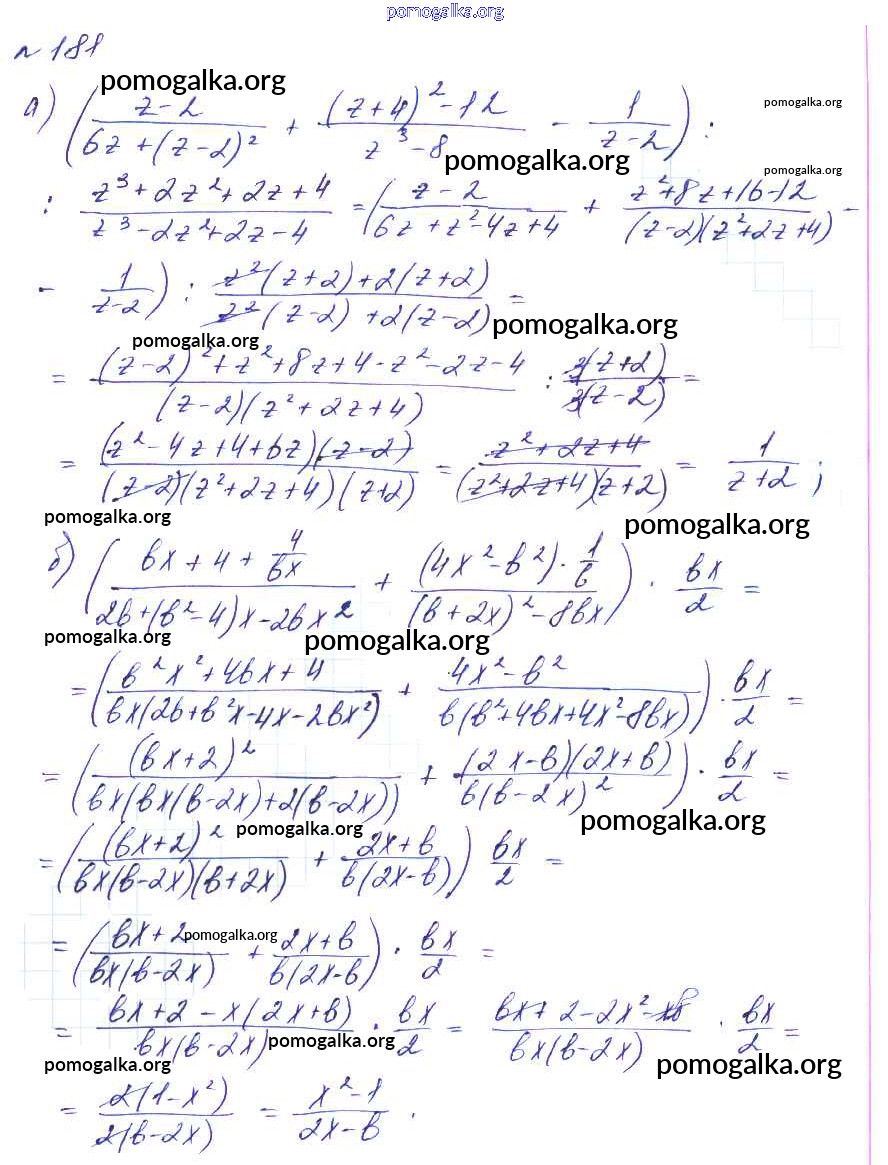 pomogalka.org
№ 181
pomogalka.org
а) ( (z-2)/(6z+(z-2)²) + ((z+4)²-12)/(z³-8) - 1/(z-2) ) :
pomogalka.org
pomogalka.org
pomogalka.org
: (z³+2z²+2z+4)/(z³-2z²+2z-4) = ( (z-2)/(6z+z²-4z+4) + (z²+8z+16-12)/((z-2)(z²+2z+4)) -
- 1/(z-2) ) : (z²(z+2)+2(z+2))/(z²(z-2)+2(z-2)) =
pomogalka.org
pomogalka.org
= ((z-2)²+z²+8z+4-z²-2z-4)/((z-2)(z²+2z+4)) : 3(z+2)/3(z-2) =
= ((z²-4z+4+6z)(z-2))/((z-2)(z²+2z+4)(z+2)) = (z²+2z+4)/((z²+2z+4)(z+2)) = 1/(z+2) ;
pomogalka.org
pomogalka.org
б) ( (bx+4+4/bx)/(2b+(b²-4)x-2bx²) + ((4x²-b²)·1/b)/((b+2x)²-8bx) ) · bx/2 =
pomogalka.org
pomogalka.org
= ( (b²x²+4bx+4)/(bx(2b+b²x-4x-2bx²)) + (4x²-b²)/(b(b²+4bx+4x²-8bx)) ) · bx/2 =
= ( (bx+2)²/(bx(bx(b-2x)+2(b-2x))) + ((2x-b)(2x+b))/(b(b-2x)²) ) · bx/2 =
pomogalka.org
pomogalka.org
= ( (bx+2)²/(bx(b-2x)(b+2x)) + (2x+b)/(b(2x-b)) ) bx/2 =
pomogalka.org
= ( (bx+2)/(bx(b-2x)) + (2x+b)/(b(2x-b)) ) · bx/2 =
= (bx+2-x(2x+b))/(bx(b-2x)) · bx/2 = (bx+2-2x²-xb)/(bx(b-2x)) · bx/2 =
pomogalka.org
pomogalka.org
pomogalka.org
= 2(1-x²)/2(b-2x) = (x²-1)/(2x-b) .